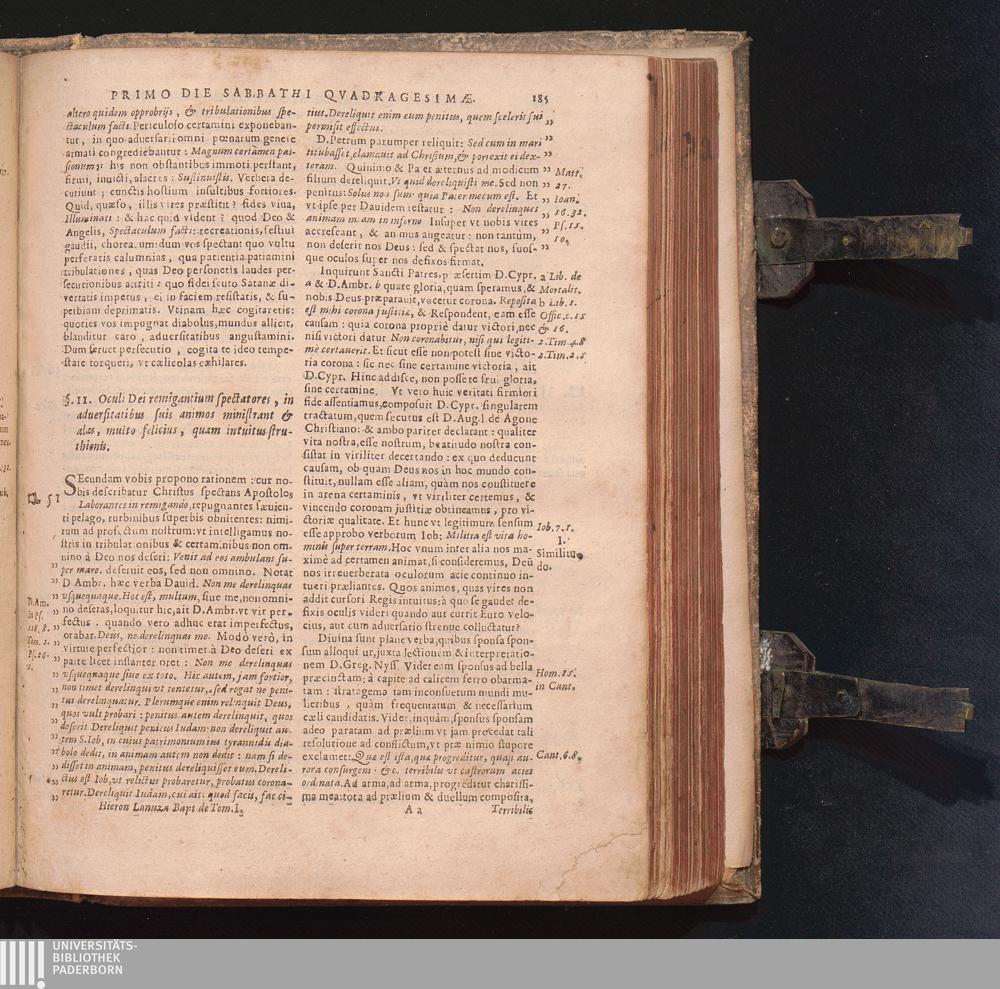 PRIMO DIE SABBATHI QVADRAGESIMÆ.
185
altero quidom opprobrijs, & tribulationibus spe-
ctaculum facti. Periculoso certamini exponeban-
tur, in quo aduersarii omni pœnarum genere
armati congrediebantur: Magnum certamen pas-
sionum: his non obstantibus immoti perstant,
firmi, inuicti, alacres: Sustinuistis. Verbera de-
cutiunt; cunctis hostium insultibus fortiores.
Quid, quæso, illis vires præstitit? fides viua,
Illuminati: & hac quid vident? quod Deo &
Angelis, Spectaculum facti: recreationis, festiui
gaudii, chorearum: dum vos spectant quo vultu
perferatis calumnias, qua patientia patiamini
tribulationes, quas Deo personetis laudes per-
secutionibus attriti: quo fidei scuto Satanæ di-
uertatis impetus, ei in faciem resistatis, & su-
perbiam deprimatis. Vtinam hæc cogitaretis:
quoties vos impugnat diabolus, mundus allicit,
blanditur caro, aduersitatibus angustamini.
Dum feruet persecutio, cogitate ideo tempe-
state torqueri, vt cælicolas exhilares.
§. II. Oculi Dei remigantium spectatores, in
aduersitatibus suis animos ministrant &
alas, multo felicius, quam intuitus stru-
thionis.
51
SEcundam vobis propono rationem: cur no-
bis describatur Christus spectans Apostolos
Laborantes in remigando, repugnantes sæuien-
ti pelago, turbinibus superbis obnitentes: nimi-
rum ad profectum nostrum: vt intelligamus no-
stris in tribulationibus & certaminibus non om-
nino à Deo nos deseri: Venit ad eos ambulans su-
per mare. deseruit eos, sed non omnino. Notat
D Ambr. hæc verba Dauid. Non me derelinquas
vsquequaque. Hoc est, multum, siue my, non omni-
no deseras, loquitur hic, ait D. Ambr. vt vir per-
fectus: quando vero adhuc erat imperfectus,
orabat. Deus, ne derelinquas me. Modò verò, in
virtute perfectior: non timet à Deo deseri ex
parte licet instanter oret: Non me derelinquas
vsquequaque siue ex toto. Hic autem, jam fortior,
non timet derelinqui vt tentetur, sed rogat ne peni-
tus derelinquatur. Plerumque enim relinquit Deus,
quos vult probari: penitus autem derelinquit, quos
deserit Dereliquit penitus Iudam: non dereliquit au-
tem S. Iob, in cuius patrimonium ius tyrannidis dia-
bolo dedit, in animam autem non dedit: nam si de-
disset in animam, penitus dereliquisset eum. Dereli-
ctus est Iob, vt relictus probaretur, probatus corona-
retur. Dereliquit Iudam, cui ait: quod facis, fac ci-
Hieron Lanuza Bapt de Tom. I.
D. Am.
in Ps.
118. 8.
Tom. 2.
Ps. 26.
tius. Dereliquit enim eum penitus, quem sceleris sui
permisit effectus.
D. Petrum parumper reliquit: Sed cum in mari
titubasset, clamauit ad Christum, & porrexit ei dex-
teram. Quinimo & Pater æternus ad modicum
filium dereliquit. Vt quid dereliquisti me. Sed non
penitus: Solus non sum: quia Pater mecum est. Et
vt ipse per Dauidem testatur: Non derelinques
animam meam in inferno. Insuper vt nobis vires
accrescant, & animus augeatur: non tantùm,
non deserit nos Deus: sed & spectat nos, suos-
que oculos super nos defixos firmat.
Inquirunt Sancti Patres, præsertim D. Cypr.
a & D. Ambr. b quare gloria, quam speramus, &
nobis Deus præparauit, vocetur corona. Reposita
est mihi corona justitiæ, & Respondent, eam esse
causam: quia corona propriè datur victori, nec
nisi victori datur Non coronabitur, nisi qui legitt-
me certauerit. Et sicut esse non potest sine victo-
ria corona: sic nec sine certamine victoria, ait
D. Cypr. Hinc addisce, non posse te frui gloria,
sine certamine. Vt vero huic veritati firmiori
fide assentiamus, composuit D. Cypr. singularem
tractatum, quem secutus est D. Aug. l. de Agone
Christiano: & ambo pariter declarant: qualiter
vita nostra, esse nostrum, beatitudo nostra con-
sistat in viriliter decertando: ex quo deducunt
causam, ob quam Deus nos in hoc mundo con-
stituit, nullam esse aliam, quàm nos constituere
in arena certaminis, vt viriliter certemus, &
vincendo coronam justitiæ obtineamus, pro vi-
ctoriæ qualitate. Et hunc vt legitimum sensum
esse approbo verborum Iob: Militia est vita ho-
minis super terram. Hoc vnum inter alia nos ma-
ximè ad certamen animat, si consideremus, Deū
nos irreuerberata oculorum acie continuo in-
tueri præliantes. Quos animos, quas vires non
addit cursori Regis intuitus: à quo se gaudet de-
fixis oculis videri quando aut currit Euro velo-
cius, aut cum aduersario strenue colluctatur?
Diuina sunt plane verba, quibus sponsa spon-
sum alloquitur, juxta lectionem & interpretatio-
nem D. Greg. Nyss. Videt eam sponsus ad bella
præcinctam: à capite ad calicem ferro obarma-
tam: stratagema tam inconsuetum mundi mu-
lieribus, quàm frequentatum & necessarium
cæli candidatis. Videt, inquàm, sponsus sponsam
adeo paratam ad prælium vt jam procedat tali
resolutione ad conflictum, vt præ nimio stupore
exclamet: Quæ est ista, quæ progreditur, quasi au-
rora consurgens &c. terribilis vt castrorum acies
ordinata. Ad arma, ad arma, progreditur charissi-
ma mea: tota ad prælium & duellum composita,
A a
Terribilis
Matt.
27.
Ioan.
16. 32.
Ps. 15.
10.
a Lib. de
Mortalit.
b Lib. 1.
Offic. c. 15
& 16.
2. Tim. 4. 8
2. Tim. 2. 5
Iob. 7. 1.
I.
Similitu-
do.
Hom. 15.
in Cant.
Cant. 6. 8.
UNIVERSITÄTS-
BIBLIOTHEK
PADERBORN